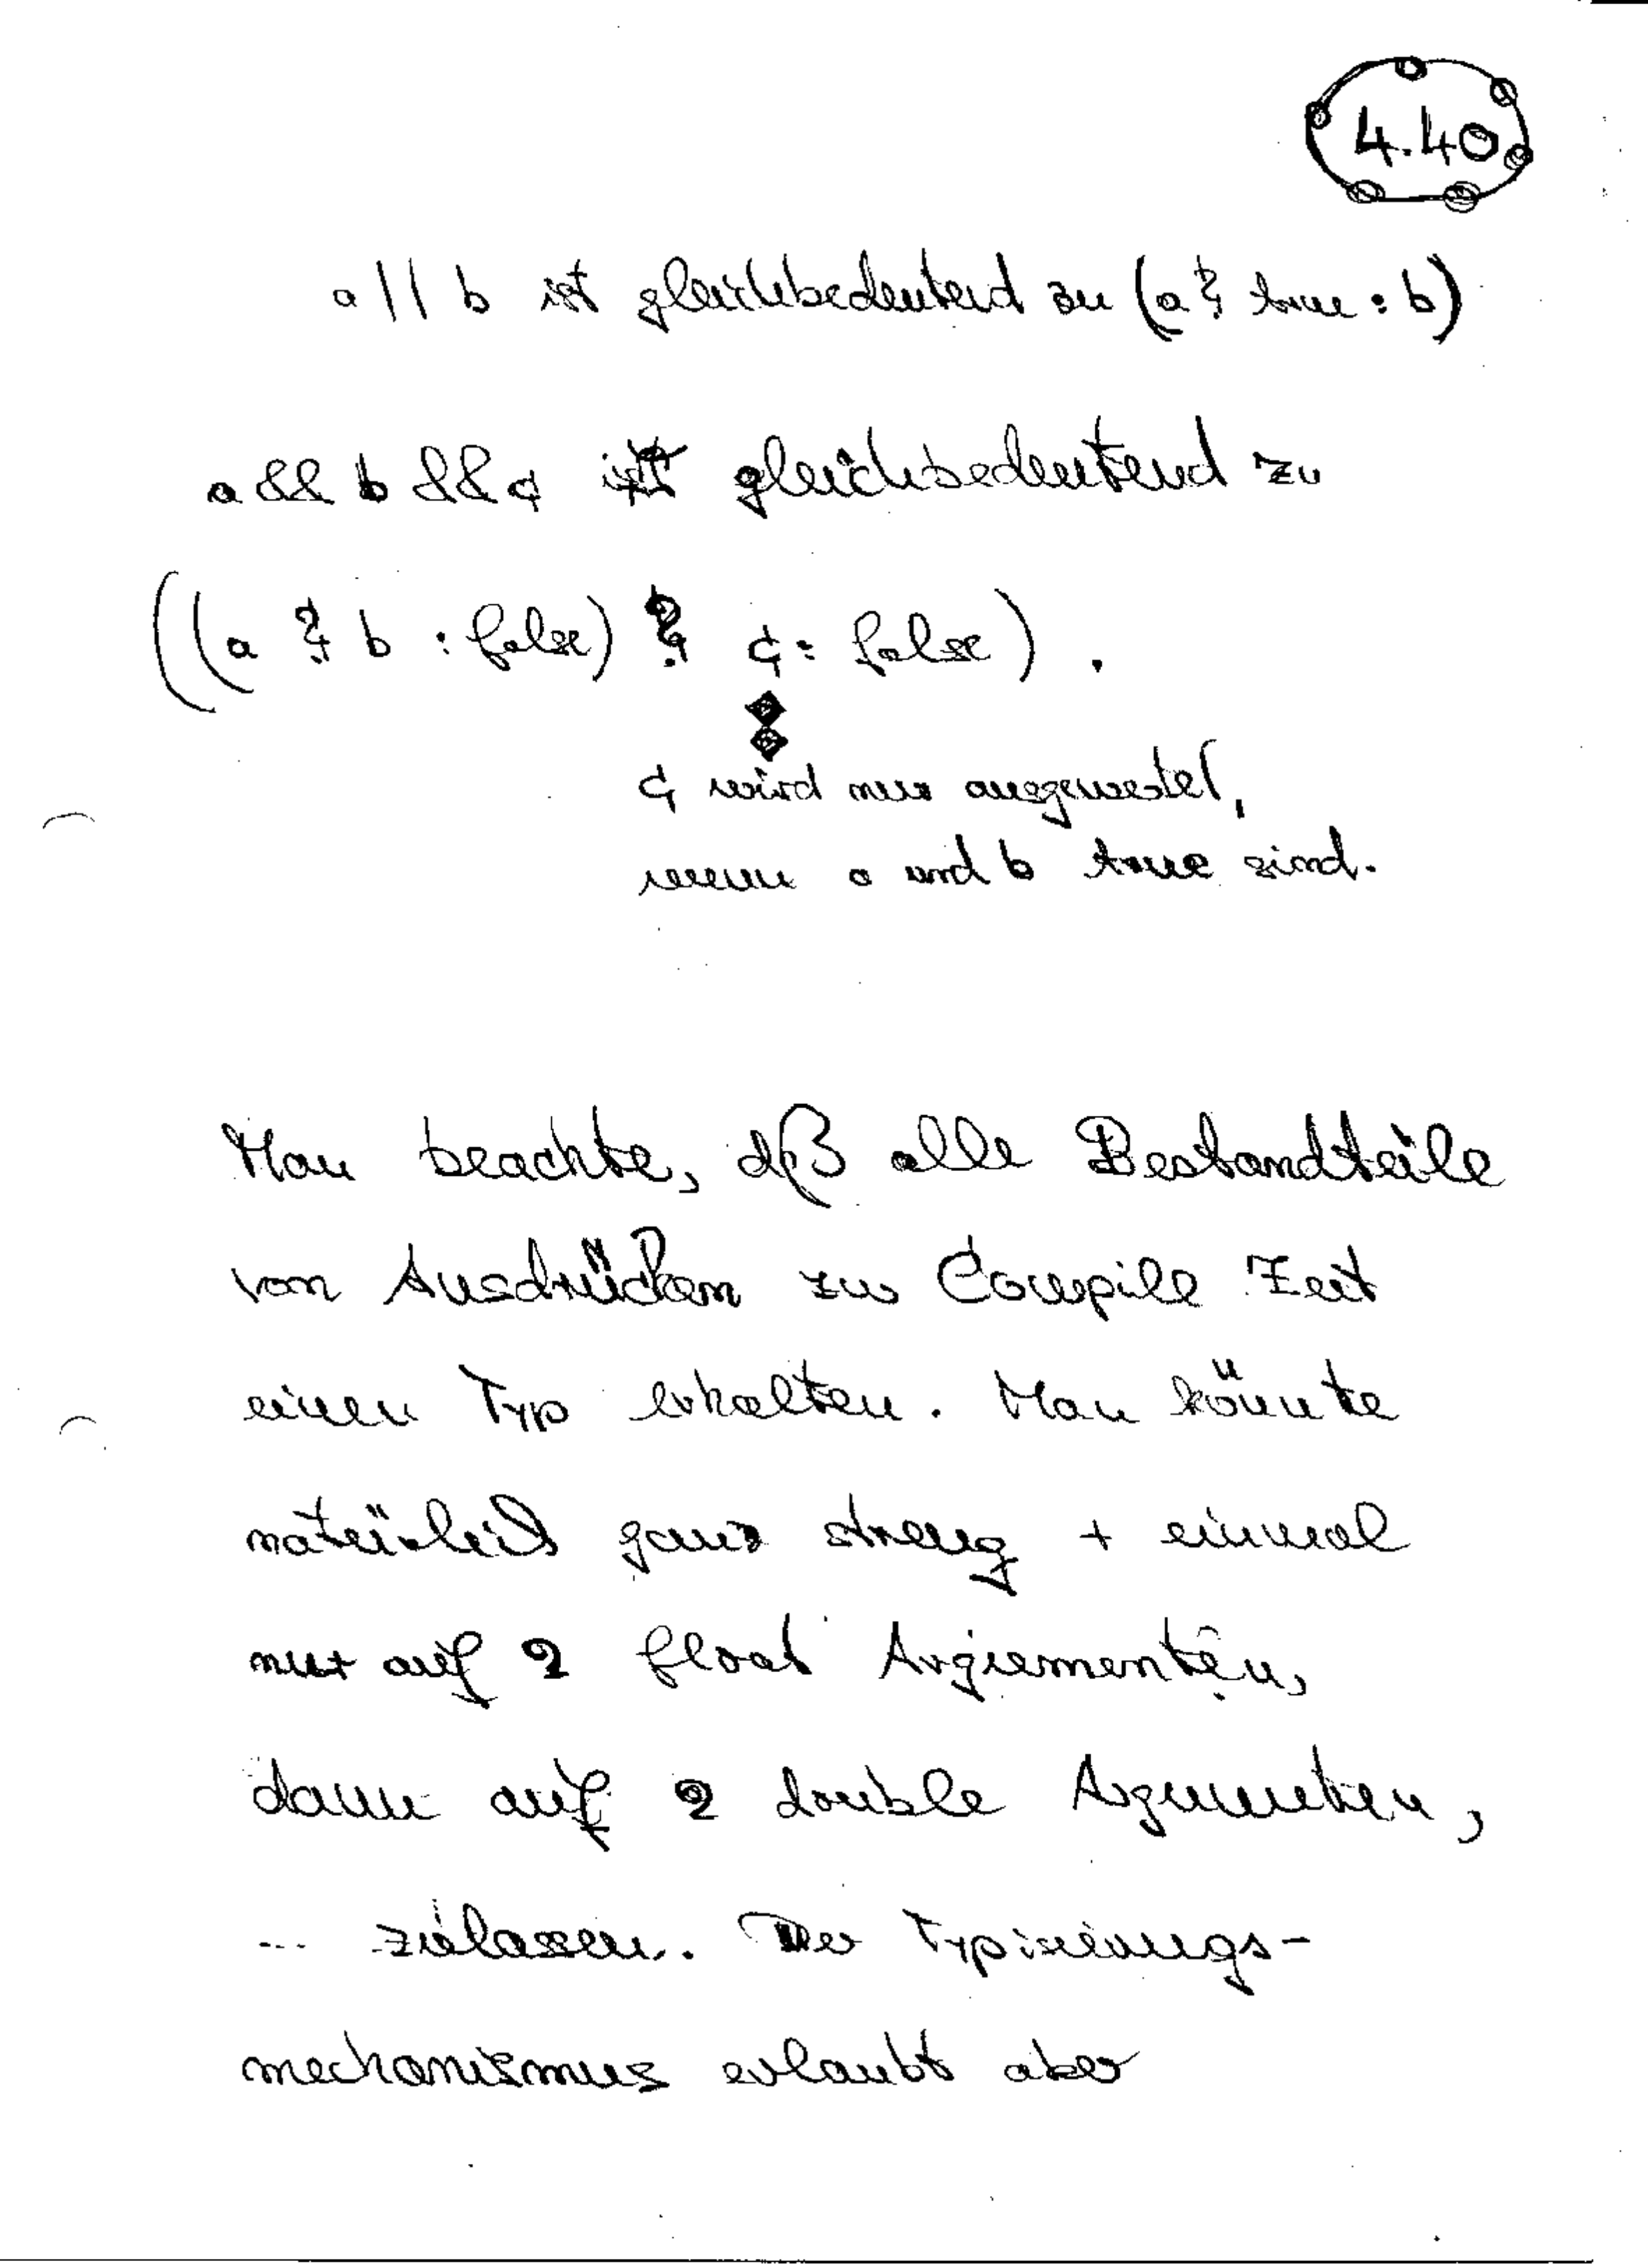 4.40
a || b ist gleichbedeutend zu (a ? true : b)
a && b && c ist gleichbedeutend zu
((a ? b : false) ? c : false) .
c wird nur ausgewertet,
wenn a und b true sind.
Man beachte, daß alle Bestandteile
von Ausdrücken zur Compile Zeit
einen Typ erhalten. Man könnte
natürlich ganz streng + einmal
nur auf 2 float Argumenten,
dann auf 2 double Argumenten,
... zulassen. Der Typisierungs-
mechanismus erlaubt aber